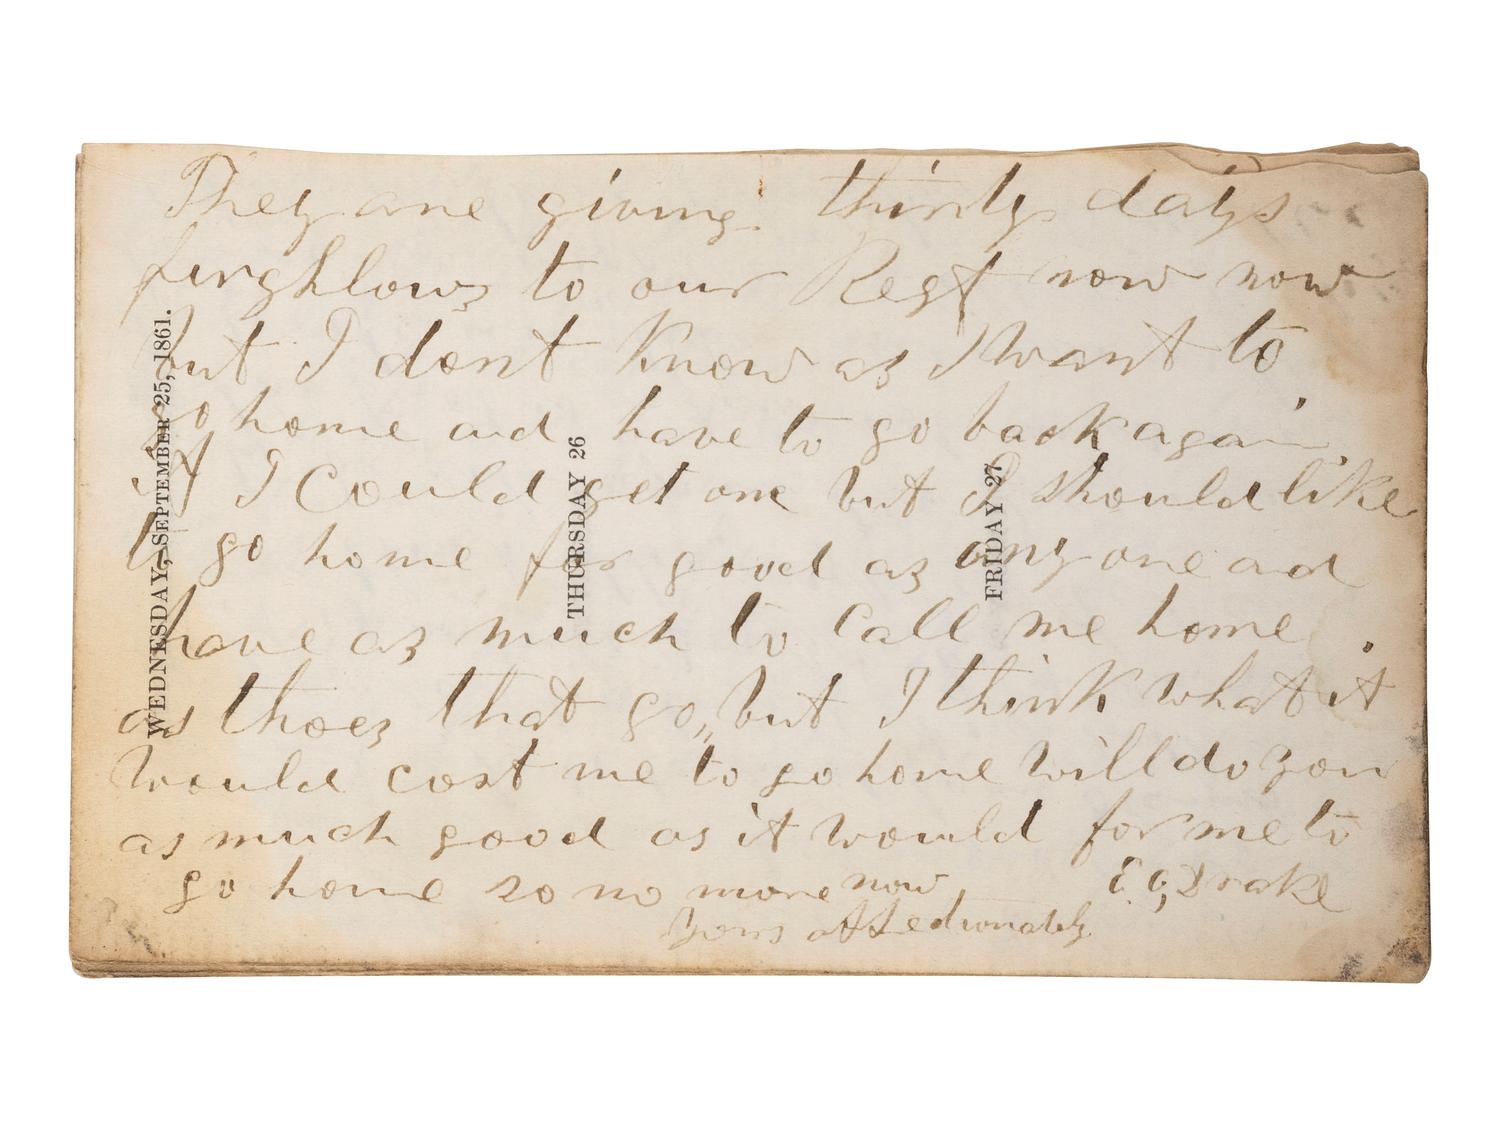 They are giving thirty days
furghlows to our Regt now now
but I dont know as I want to
go home and have to go back again
if I could get one but I should like
to go home for good as any one and
have as much to call me home
as thoes that go, but I think what it
would cost me to go home will do you
as much good as it would for me to
go home so no more now
E. G. Drake
Yours affectionately
WEDNESDAY, SEPTEMBER 25, 1861.
THURSDAY 26
FRIDAY 27